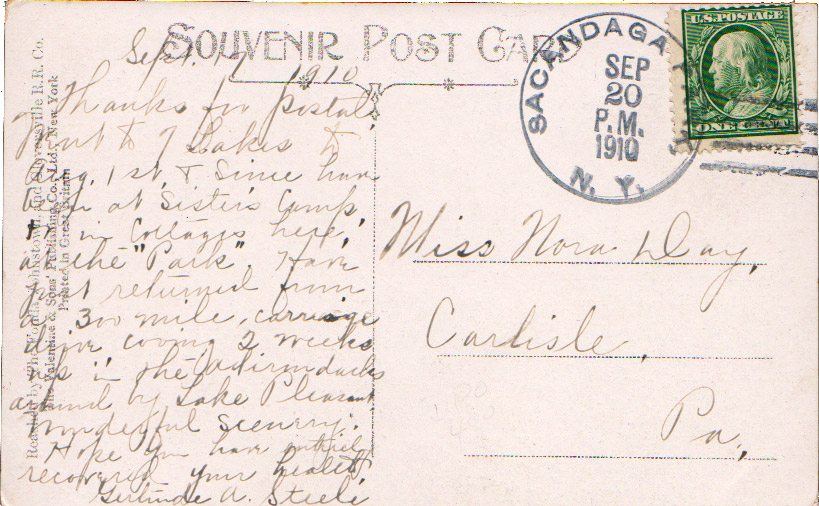 SOUVENIR POST CARD
Sept. 19 1910
Thanks for postal,
Went to 7 Lakes to
Aug. 1st, & Since have
been at Sister's Camp,
& in Cottages here,
at the "Park". Have
just returned from
a 300 mile, carriage
drive coving 2 weeks
up in the Adirondacks
around by Lake Pleasant
wonderful scenery.
Hope you have entirely
recovered your health,
Gertrude A. Steele
Reached by The Fonda, Johnstown, and Gloversville R. R. Co.
The Valentine & Sons Publishing Co., Ltd., New York
Printed in Great Britain
SACANDAGA
SEP
20
P.M.
1910
N. Y.
U.S. POSTAGE
ONE CENT
Miss Nora Day,
Carlisle,
Pa,